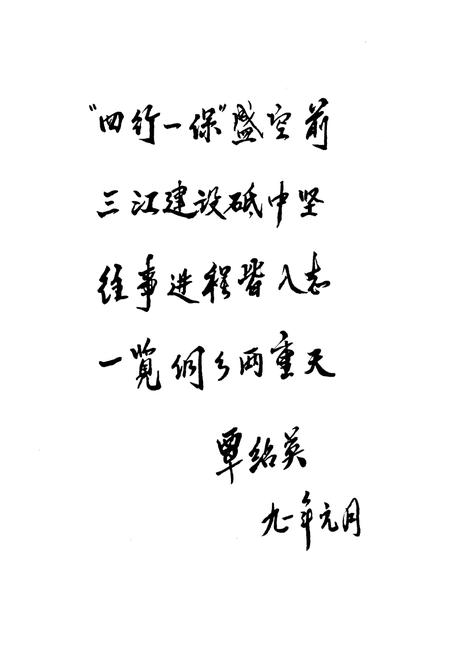 “四行一保”盛空前
三江建设砥中坚
往事进程皆入志
一览侗乡两重天
覃绍英
九一年元月